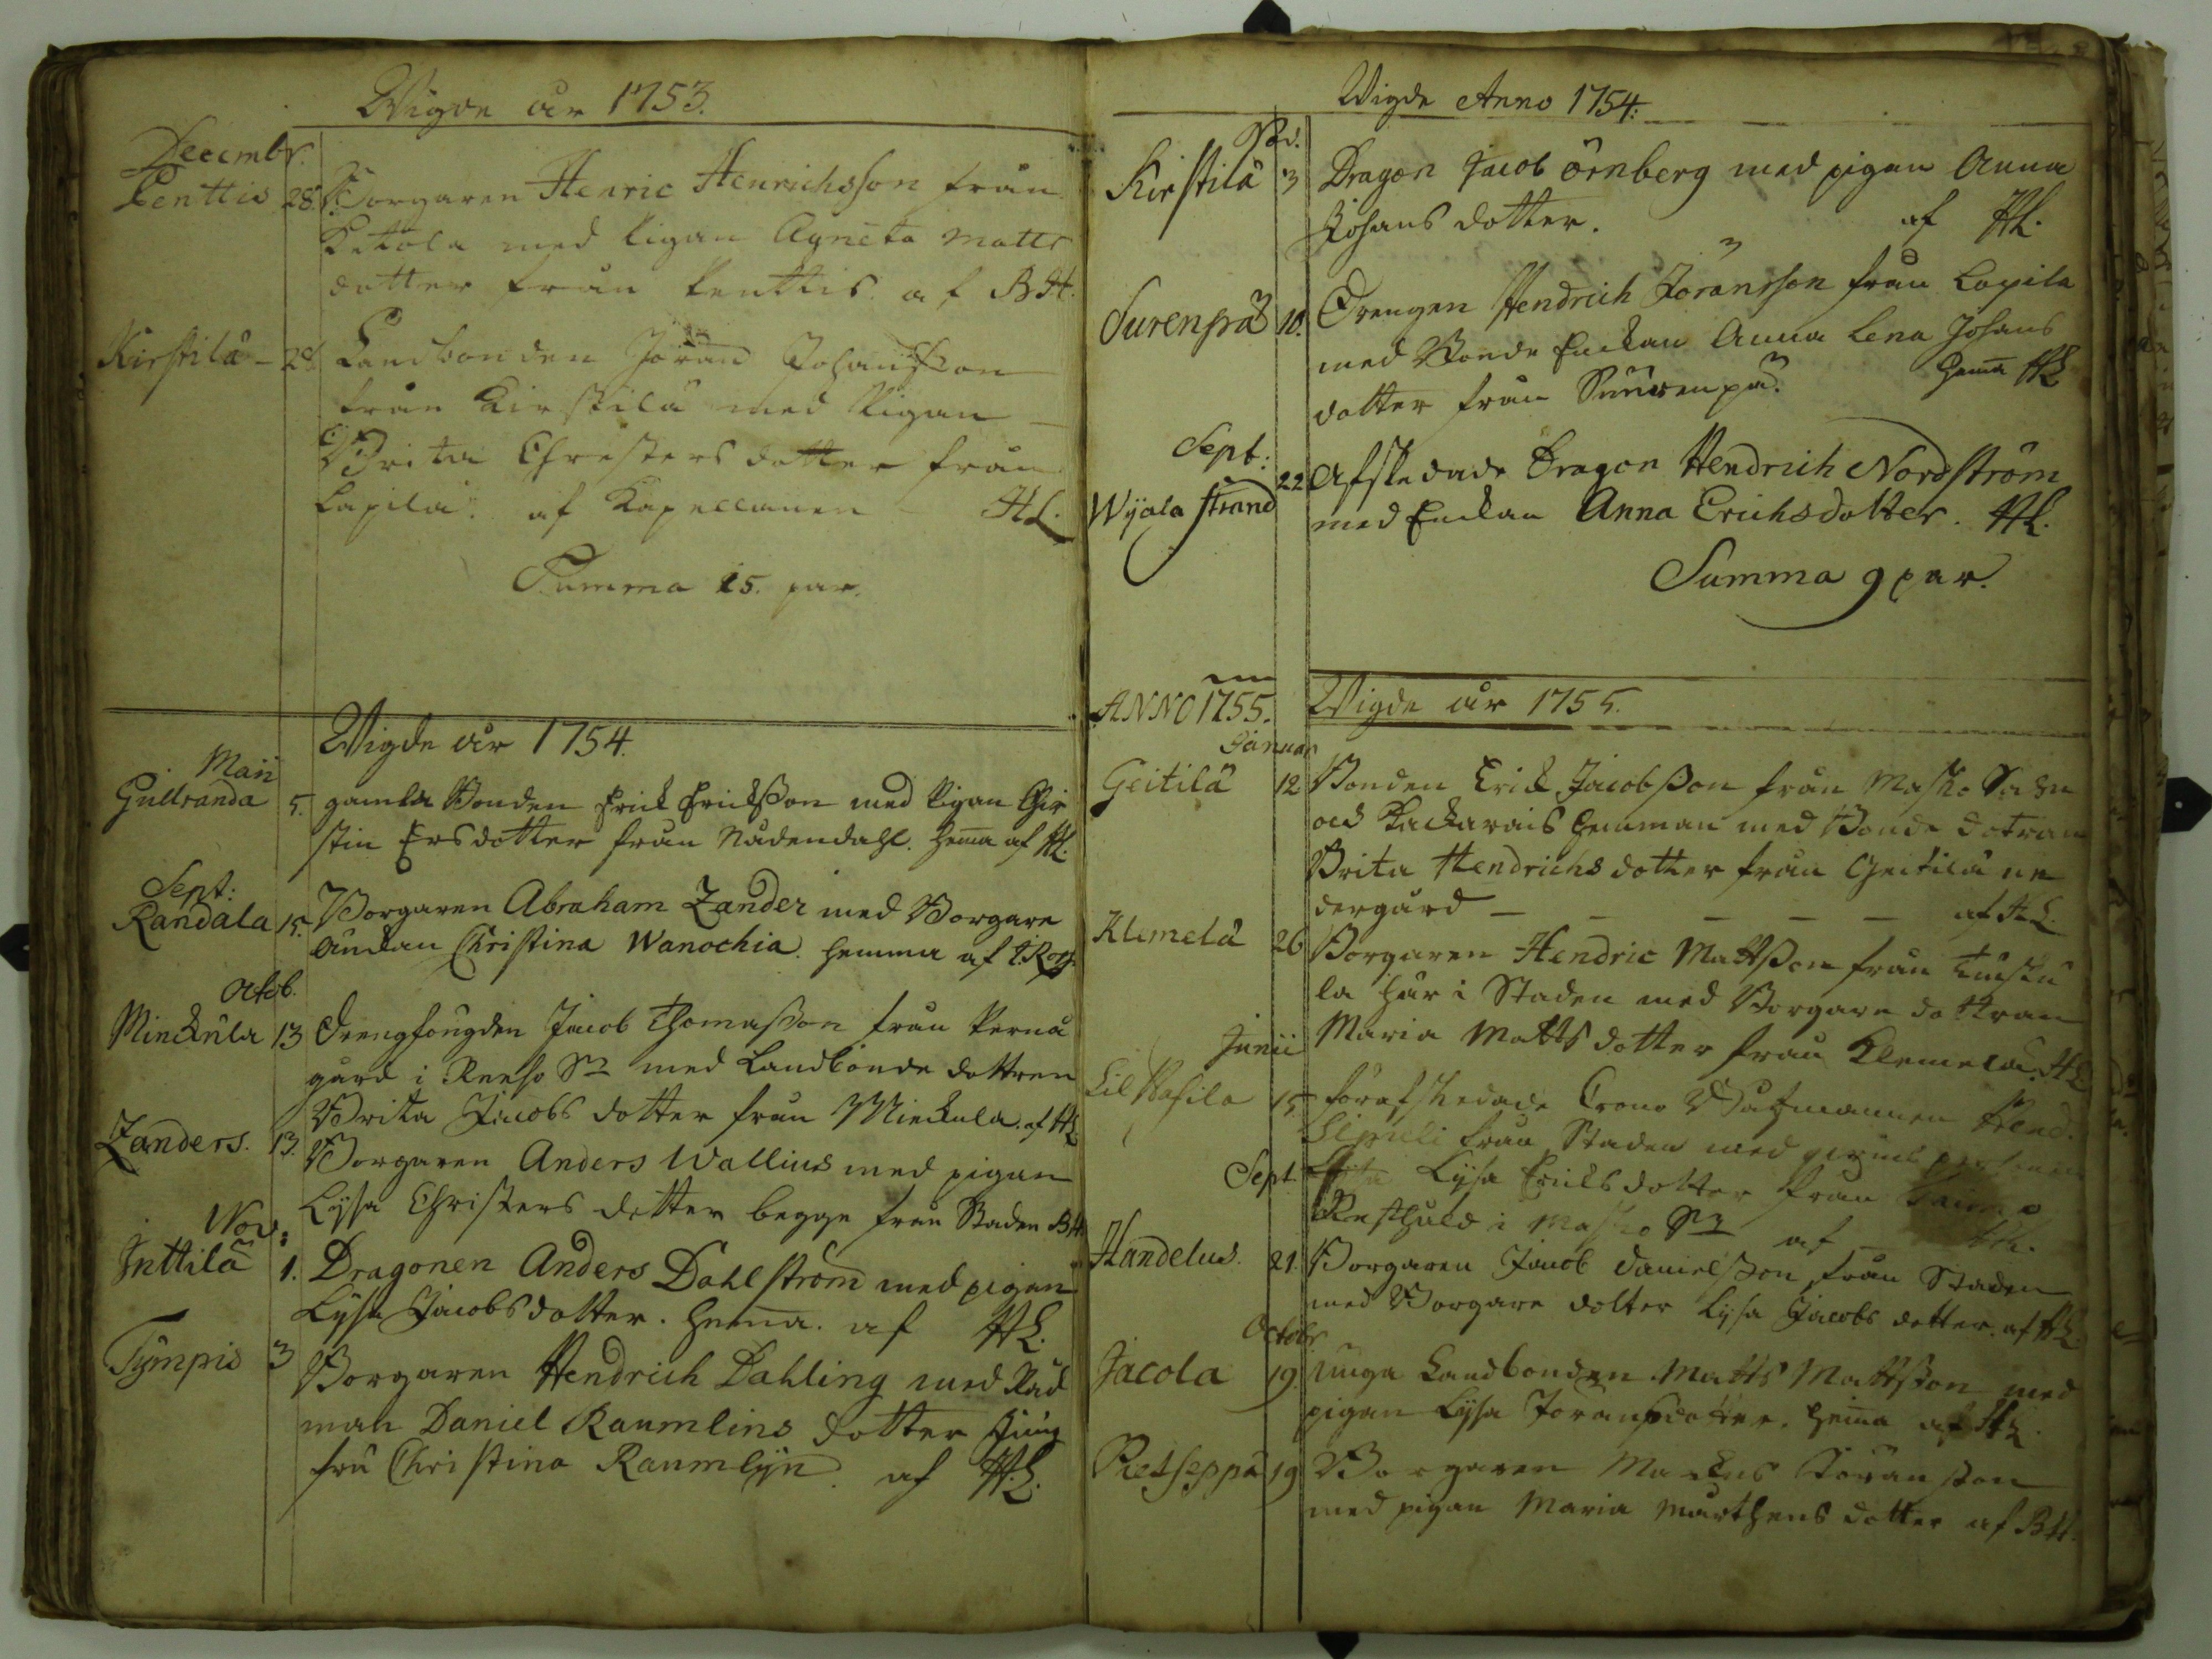 Wigde år 1753.
Decembr.
Penttis 28. Borgaren Henric Henrichsson från
Ketola med Pigan Agneta Matts
dotter från Penttis. af BH.
Kirstilä - 28 Landbonden Jöran Johansson
från Kirstilä med Pigan
Brita Christers dotter från
Lapila. af Kapellanen HL.
Summa 15. par.
Wigde år 1754.
Maii
Gullranda 5. gamla Bonden Erick Ericksson med Pigan Chir
stin Ersdotter från Nådendahl. hema af HL.
Sept:
Randala 15. Borgaren Abraham Zander med Borgare
Änckan Christina Wanochia. hemma af
Octob.
Minckula 13 Drengfougden Jacob Thomasson från Pernå
gård i Reeso Sn med Landbonde dottren
Brita Jacobs dotter från Minckula. af HL
Zanders. 13. Borgaren Anders Wallius med pigan
Lysa Christers dotter begge från Staden BH
Nov:
Inttilä 1. Dragonen Anders Dahlström med pigan
Lysa Jacobsdotter. hema. af HL.
Tympis 3 Borgaren Hendrich Dahling med Råd
man Daniel Raumlins dotter Jung
fru Christina Raumlijn. af HL.
Wigde Anno 1754.
Kirstilä 3 Dragon Jacob Örnberg med pigan Anna
Johans dotter. af HL.
Surenpää 10. Drengen Hendrich Jöransson från Lapila
med Bonde Enckan Anna Lena Johans
dotter från Suurenpä. hema HL
Sept:
Wijala strand 22 Afskedade Dragon Hendrich Nordström
med Enckan Anna Erichsdotter. HL.
Summa 9 par.
ANNO 1755. Wigde år 1755.
Januar
Geitilä 12. Bonden Erick Jacobsson från Masko Sokn
och hemman med Bonde dotran
Brita Hendrichs dotter från Geitilä ne
dergård - - - - - af HL.
Klemelä 26 Borgaren Hendric Mattsson från
la här i Staden med Borgare dottran
Maria Matts dotter från Klemelä. HL
Junii
Lill Rafila 15. förafskedade Crono Båtzmannen Hend.
från Staden med
Lysa Ericks dotter från
i Masko Sn af HL.
Sept.
Handelus. 21. Borgaren Jacob Danielsson från Staden
med Borgare dotter Lysa Jacobs dotter. af HL
Octobr.
Jacola 19. unga Landbonden Matts Mattsson med
pigan Lysa Joransdotter. hema af HL.
Rietseppä 19 Borgaren Marcus Jöransson
med pigan Maria Marthens dotter af BH.